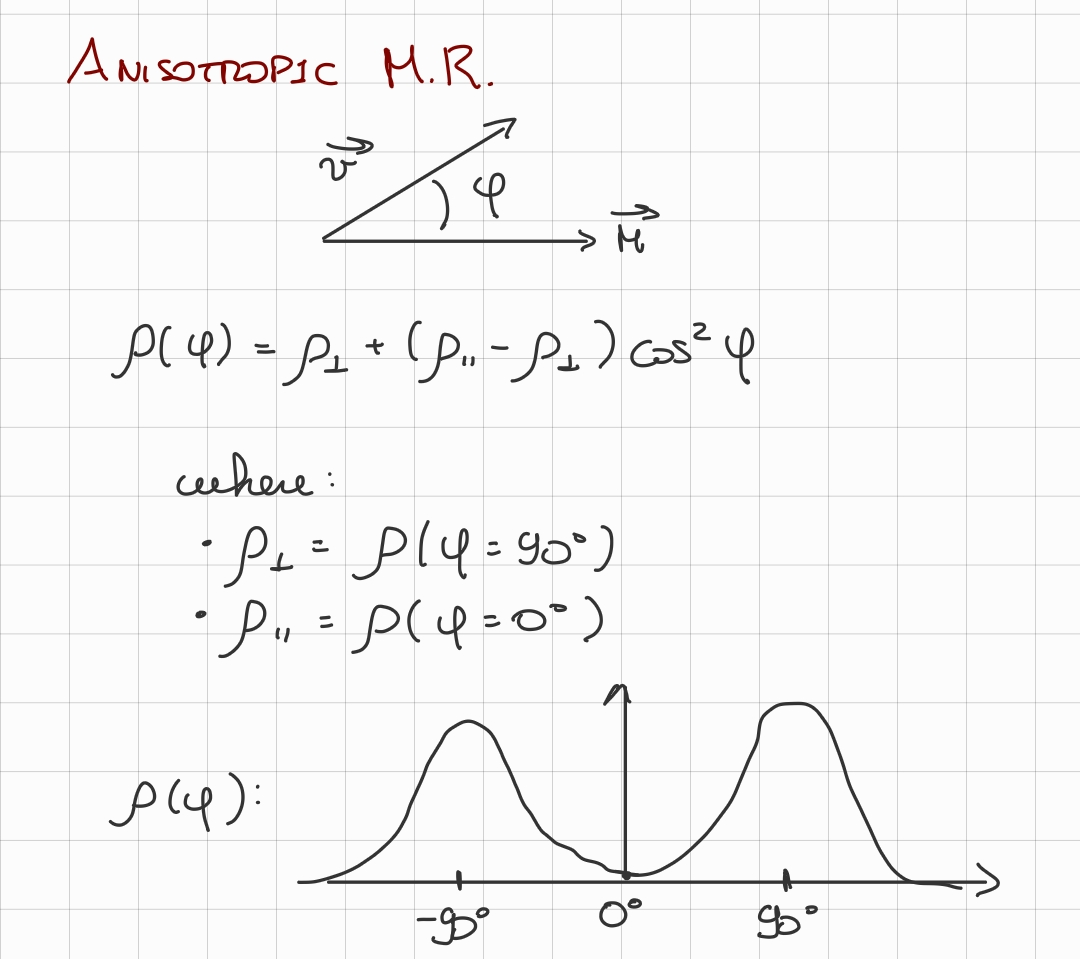 ANISOTROPIC M.R.
v⃗
φ
M⃗
ρ(φ) = ρ⊥ + (ρ∥ - ρ⊥) cos² φ
where:
• ρ⊥ = ρ(φ = 90°)
• ρ∥ = ρ(φ = 0°)
ρ(φ):
-90° 0° 90°